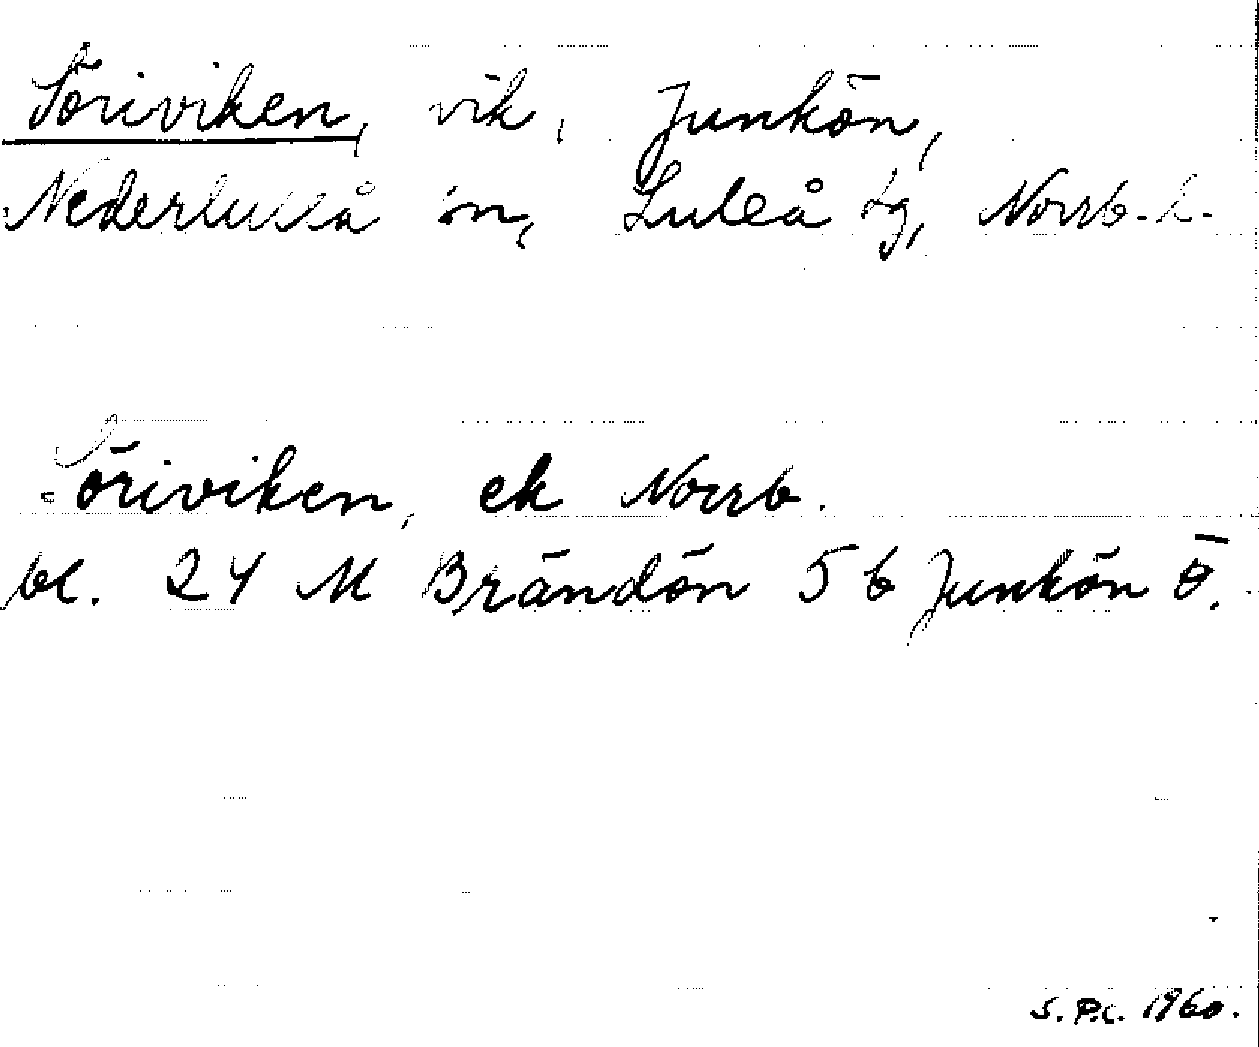 Söriviken, vik, Junkön,
Nederluleå sn, Luleå tg, Norrb. l.
Söriviken, ek Norrb.
bl. 24 M Brändön 5 b Junkön Ö.
S. P.C. 1960.